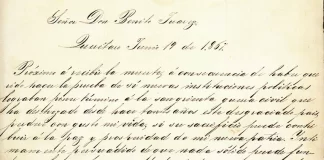 Señor Don Benito Juarez.
Querétaro Junio 19 de 1867.
Próximo á recibir la muerte, á consecuencia de haber que
rido hacer la prueba de si nuevas instituciones políticas
lograban poner término á la sangrienta guerra civil que
ha destrozado desde hace tantos años este desgraciado país,
perderé con gusto mi vida, si su sacrificio puede contri
buir á la paz y prosperidad de mi nueva patria. Inti
mamente persuadido de que nada sólido puede fun